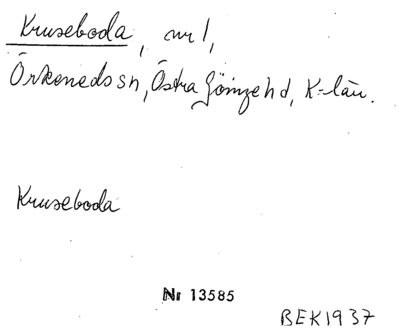 Kruseboda, nr 1,
Örkeneds sn, Östra Göinge hd, K-län.
Kruseboda
Nr 13585
BEK 1937